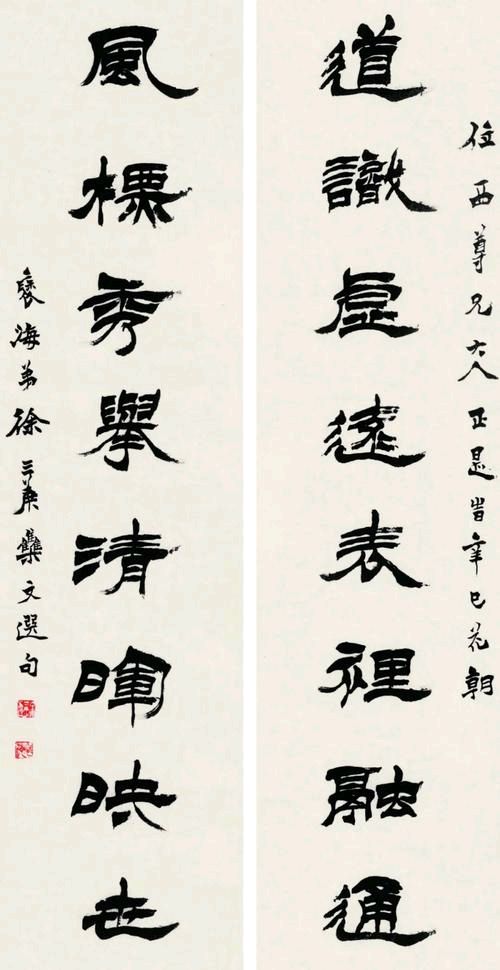 西尊兄大人正是旹辛巳花朝
道識虛遠表裡融通
風標秀舉清暉映世
褎海弟徐三庚雧文選句